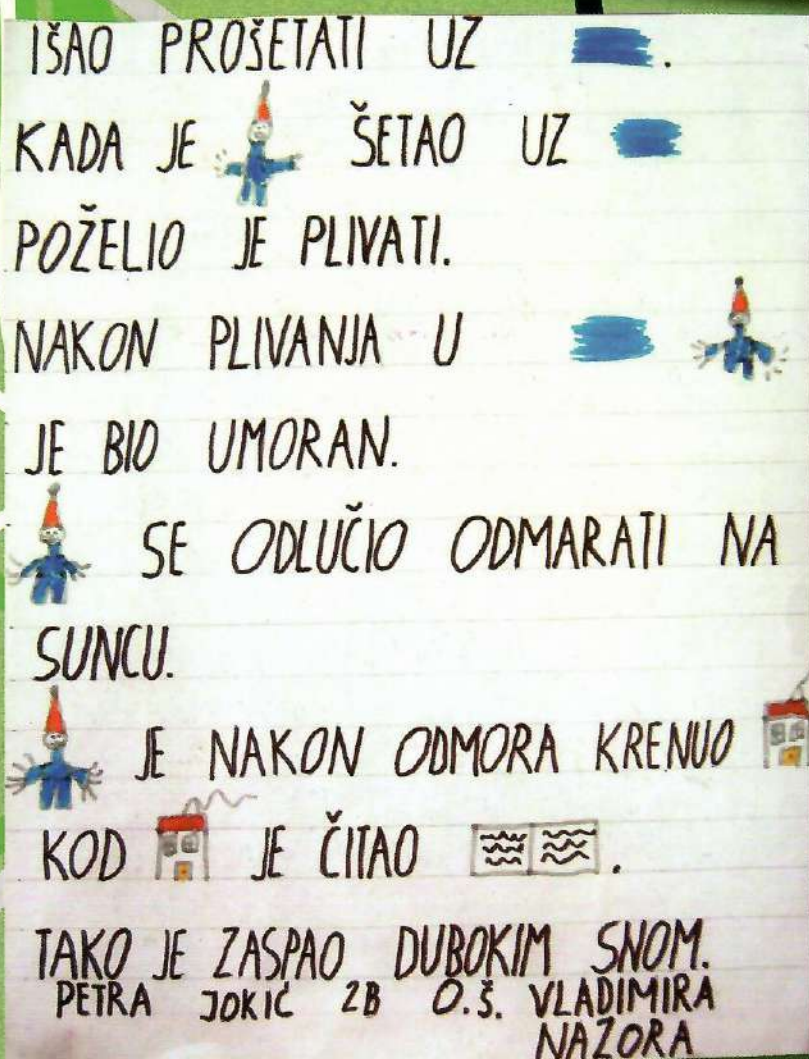 IŠAO PROŠETATI UZ .
KADA JE ŠETAO UZ
POŽELIO JE PLIVATI.
NAKON PLIVANJA U
JE BIO UMORAN.
SE ODLUČIO ODMARATI NA
SUNCU.
JE NAKON ODMORA KRENUO
KOD JE ČITAO .
TAKO JE ZASPAO DUBOKIM SNOM.
PETRA JOKIĆ 2B O.Š. VLADIMIRA
NAZORA